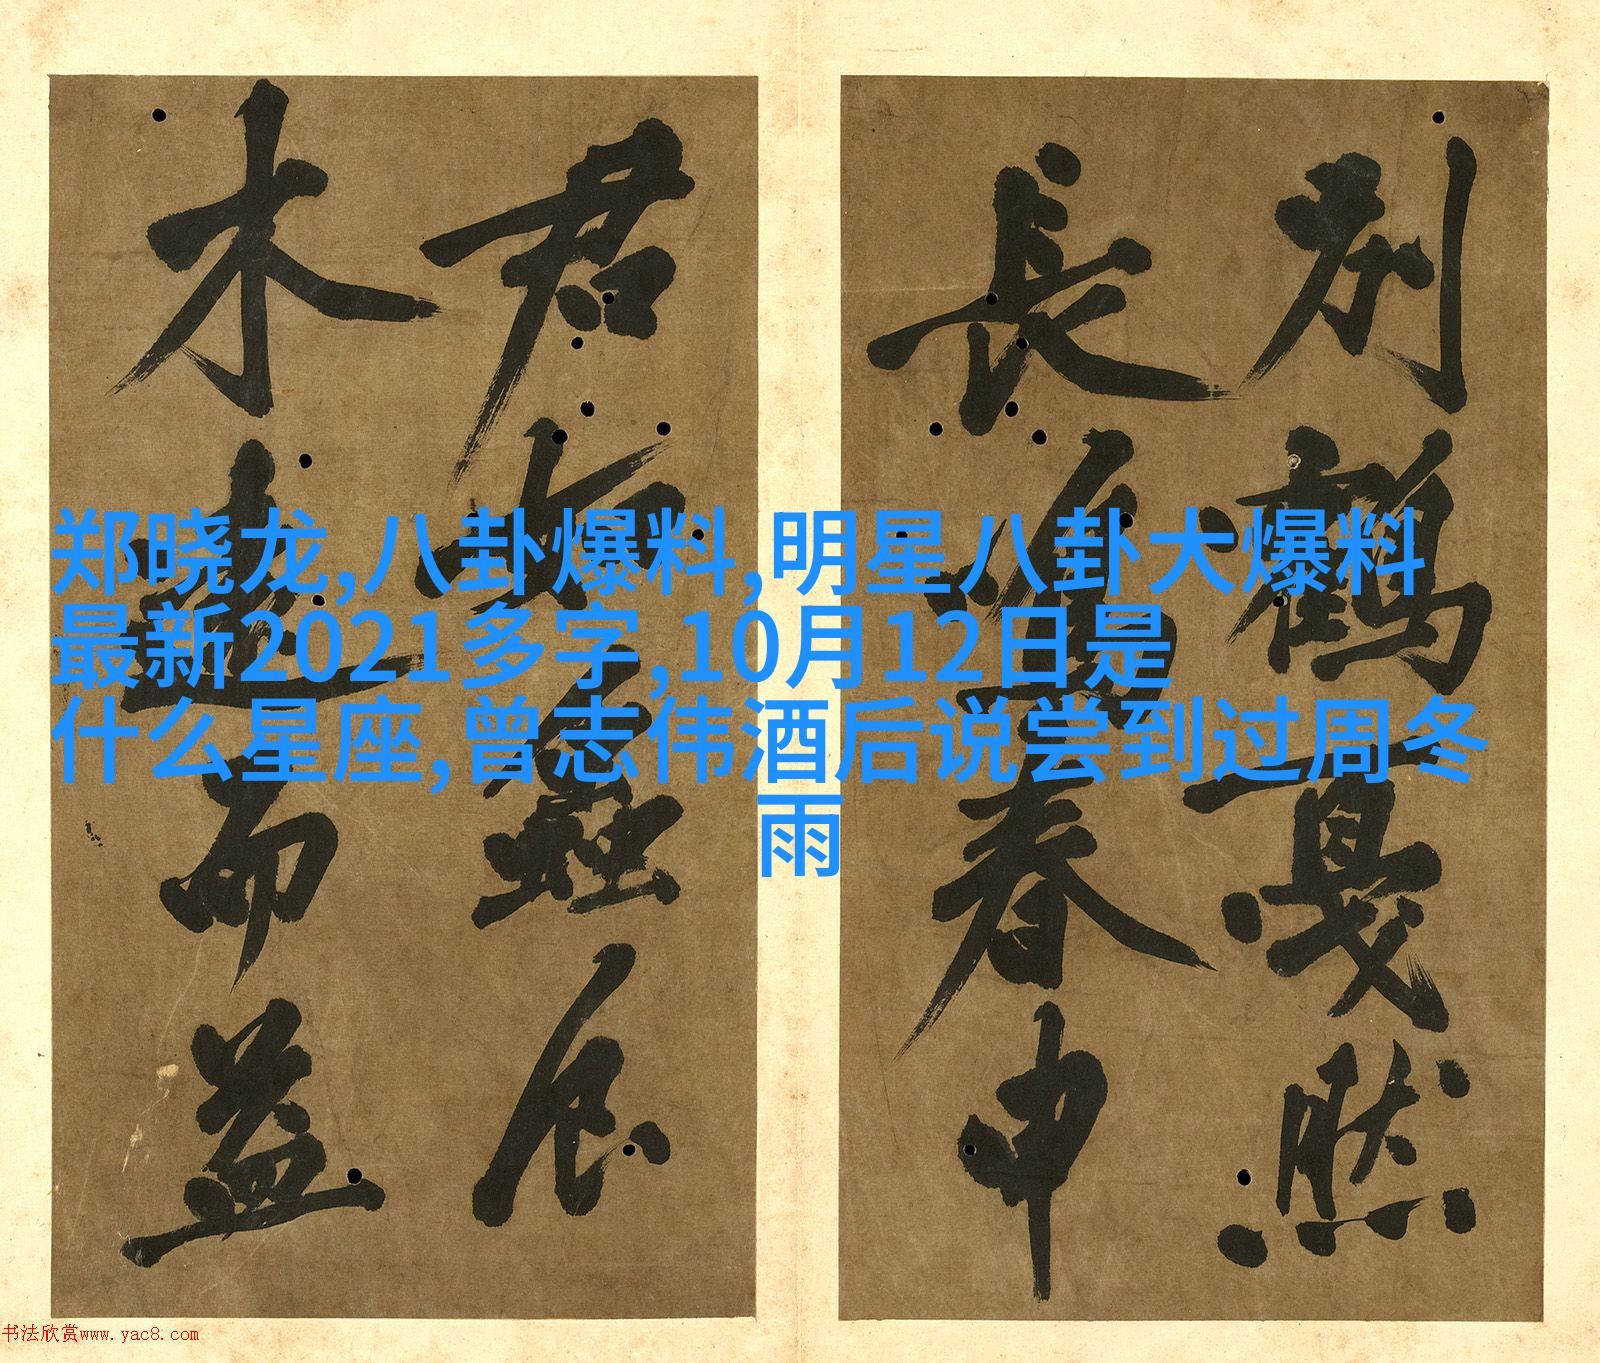 郑晓龙,八卦爆料,明星八卦大爆料
最新2021多字,10月12日是
什么星座,曾志伟酒后说尝到过周冬
雨
別鶴戛然
長鳴春申
君
木遠而益
书法欣赏www.yac8.com